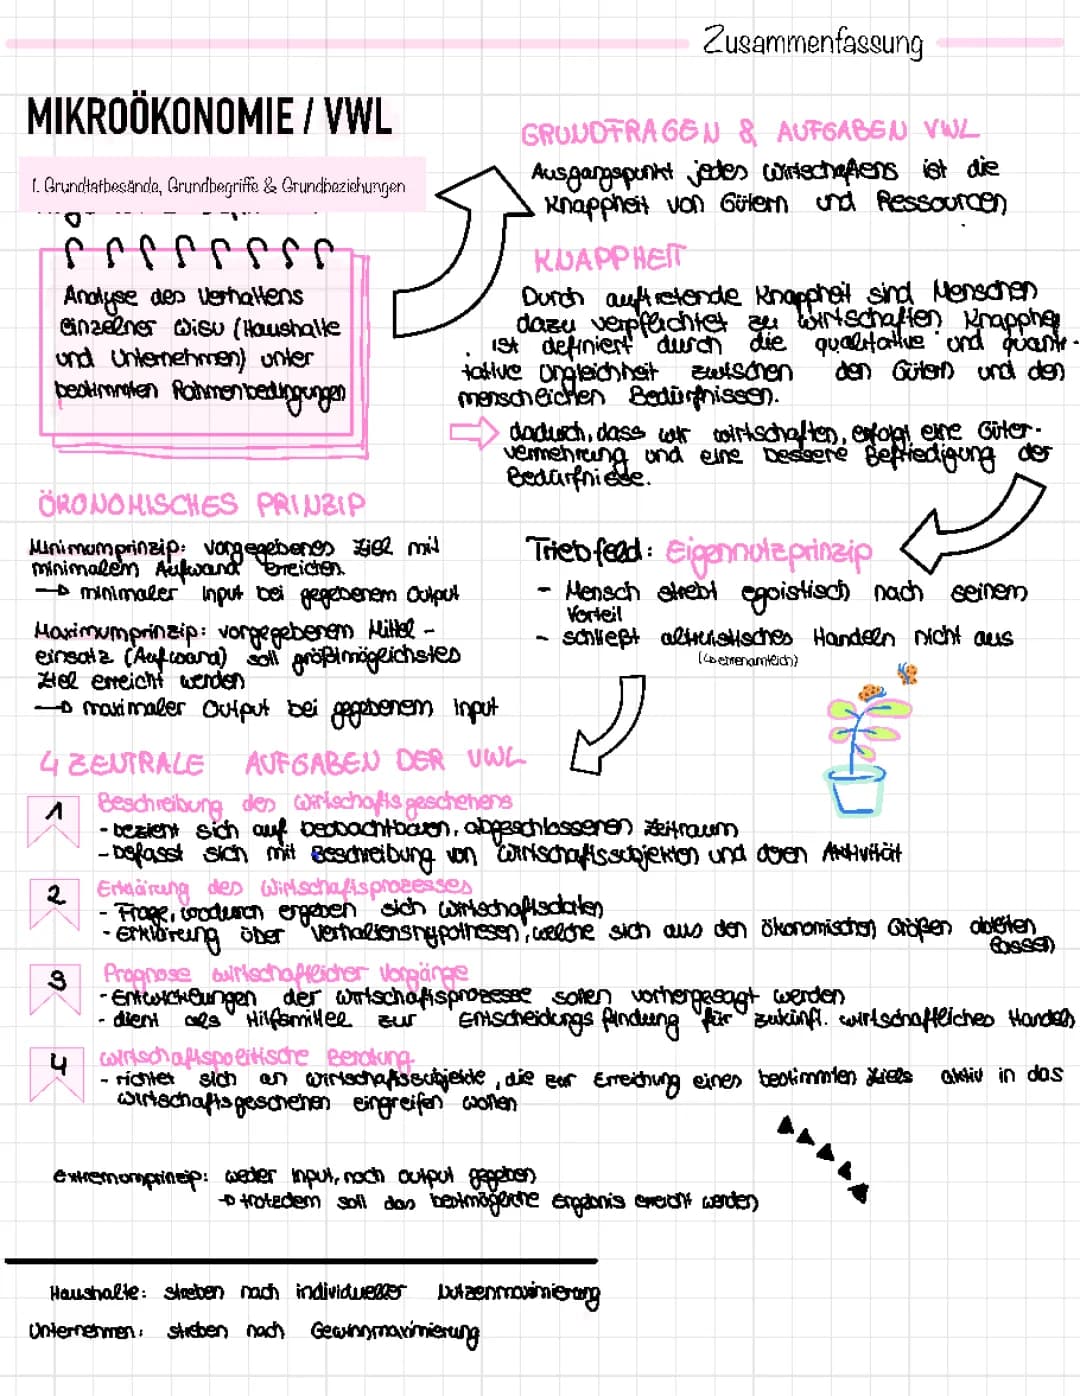 Zusammenfassung
MIKROÖKONOMIE / VWL
1. Grundtatbesände, Grundbegriffe & Grundbeziehungen
Analyse des Verhaltens
einzelner WiSu (Haushalte
und Unternehmen) unter
bestimmten Rahmenbedingungen
GRUNDFRAGEN & AUFGABEN VWL
Ausgangspunkt jedes Wirtschaftens ist die
Knappheit von Gütern und Ressourcen
KNAPPHEIT
Durch auftretende Knappheit sind Menschen
dazu verpflichtet zu wirtschaften Knappheit
ist definiert durch die qualitative und quanti-
tative Ungleichheit zwischen den Gütern und den
menschlichen Bedürfnissen.
dadurch, dass wir wirtschaften, erfolgt eine Güter-
vermehrung und eine bessere Befriedigung der
Bedürfnisse.
ÖKONOMISCHES PRINZIP
Minimumprinzip: vorgegebenes Ziel mit
minimalem Aufwand erreichen.
→ minimaler Input bei gegebenem Output
Maximumprinzip: vorgegebenem Mittel-
einsatz (Aufwand) soll größtmöglichstes
Ziel erreicht werden
→ maximaler Output bei gegebenem Input
Triebfeld: Eigennutzprinzip
- Mensch strebt egoistisch nach seinem
Vorteil
- schließt altruistisches Handeln nicht aus
(↳ ehrenamtlich)
4 ZENTRALE AUFGABEN DER VWL
1 Beschreibung des Wirtschaftsgeschehens
- bezieht sich auf beobachtbaren, abgeschlossenen Zeitraum
- befasst sich mit Beschreibung von Wirtschaftssubjekten und deren Aktivität
2 Erklärung des Wirtschaftsprozesses
- Frage, wodurch ergeben sich Wirtschaftsdaten
- Erklärung über Verhaltenshypothesen, welche sich aus den ökonomischen Größen ableiten
lassen
3 Prognose wirtschaftlicher Vorgänge
- Entwicklungen der Wirtschaftsprozesse sollen vorhergesagt werden
- dient als Hilfsmittel zur Entscheidungsfindung für zukünft. wirtschaftliches Handeln
4 wirtschaftspolitische Beratung
- richtet sich an Wirtschaftssubjekte, die zur Erreichung eines bestimmten Ziels aktiv in das
Wirtschaftsgeschehen eingreifen wollen
Extremumprinzip: weder Input, noch Output gegeben
→ trotzdem soll das bestmögliche Ergebnis erreicht werden
Haushalte: streben nach individueller Nutzenmaximierung
Unternehmen: streben nach Gewinnmaximierung